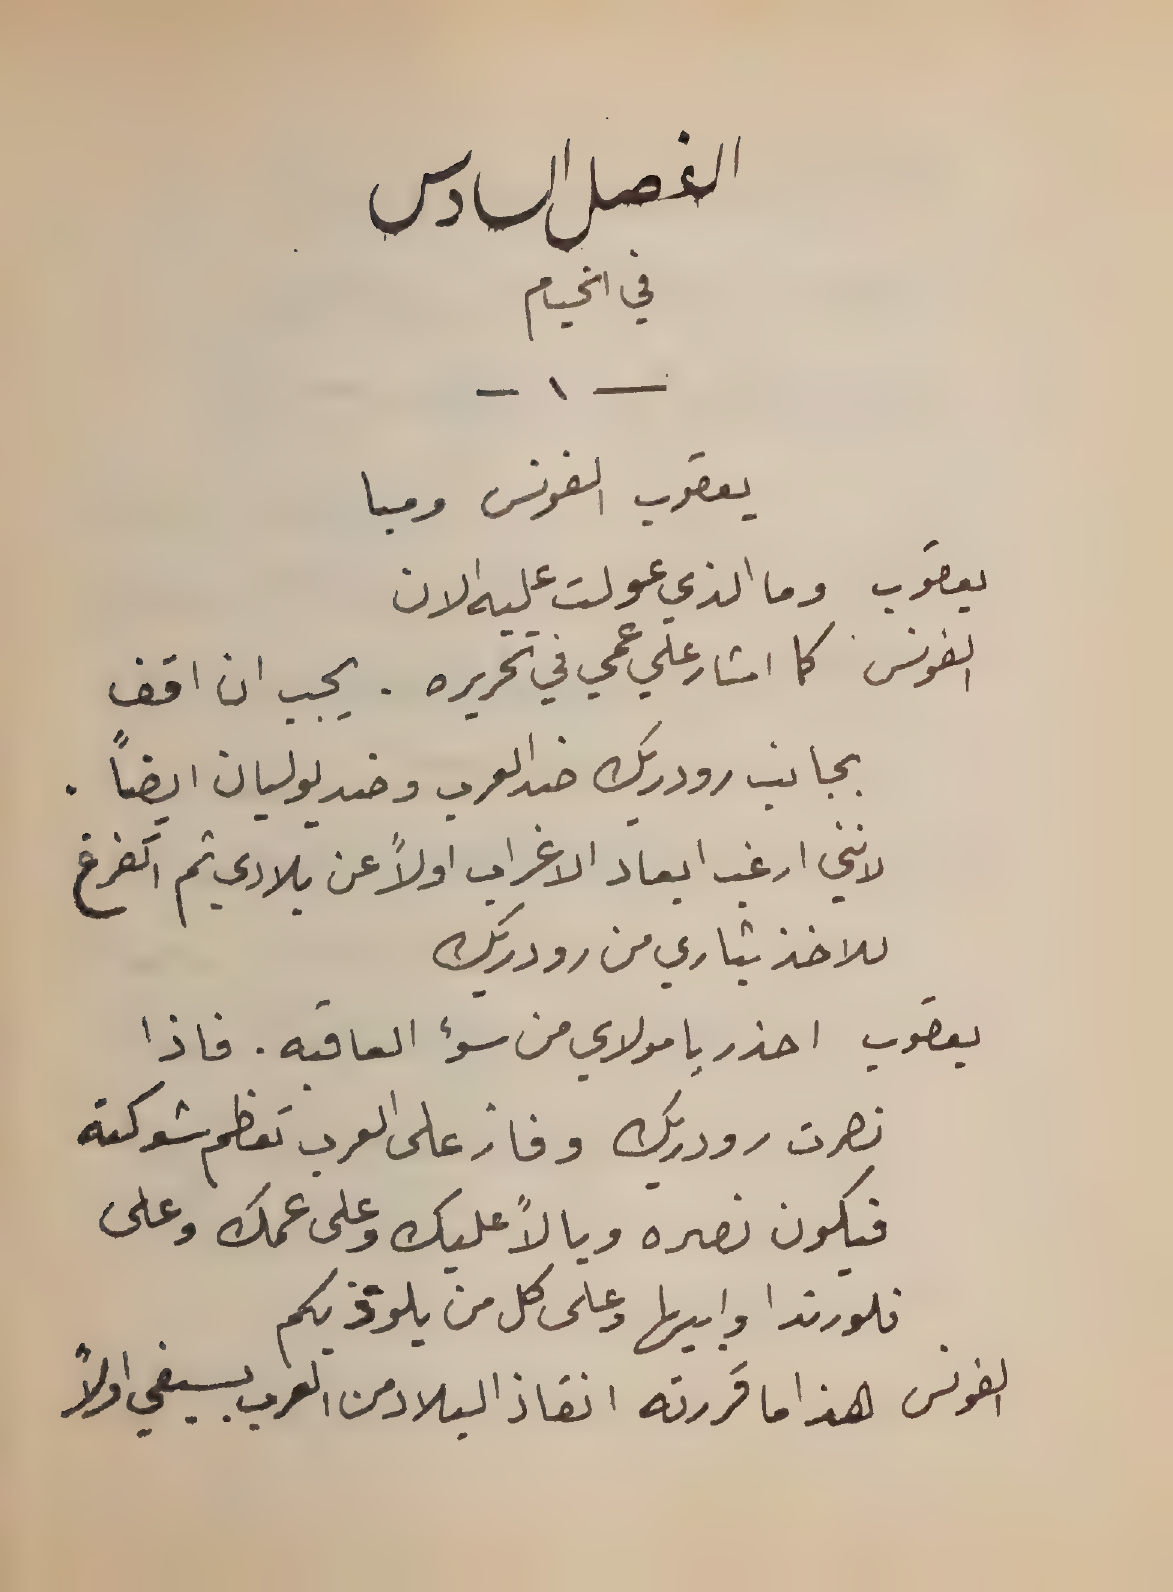 الفصل السادس
في الخيام
— ١ —
يعقوب الفونس وميا
يعقوب وما الذي عولت عليه الان
الفونس كما اشار علي عمي في تحريره . يجب ان اقف
بجانب رودريك ضد العرب وضد يوليان ايضاً .
لانني ارغب ابعاد الاغراب اولاً عن بلادي ثم اتفرغ
للاخذ بثاري من رودريك
يعقوب احذر يا مولاي من سؤ العاقبه . فاذا
نصرت رودريك وفاز على العرب تعظم شوكته
فيكون نصره وبالاً عليك وعلى عمك وعلى
فلورندا وابيها وعلى كل من يلوذ بكم
الفونس هذا ما قررته انقاذ البلاد من العرب بسيفي اولاً